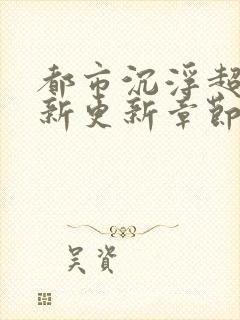 都市沉浮超
新更新章节
吴资